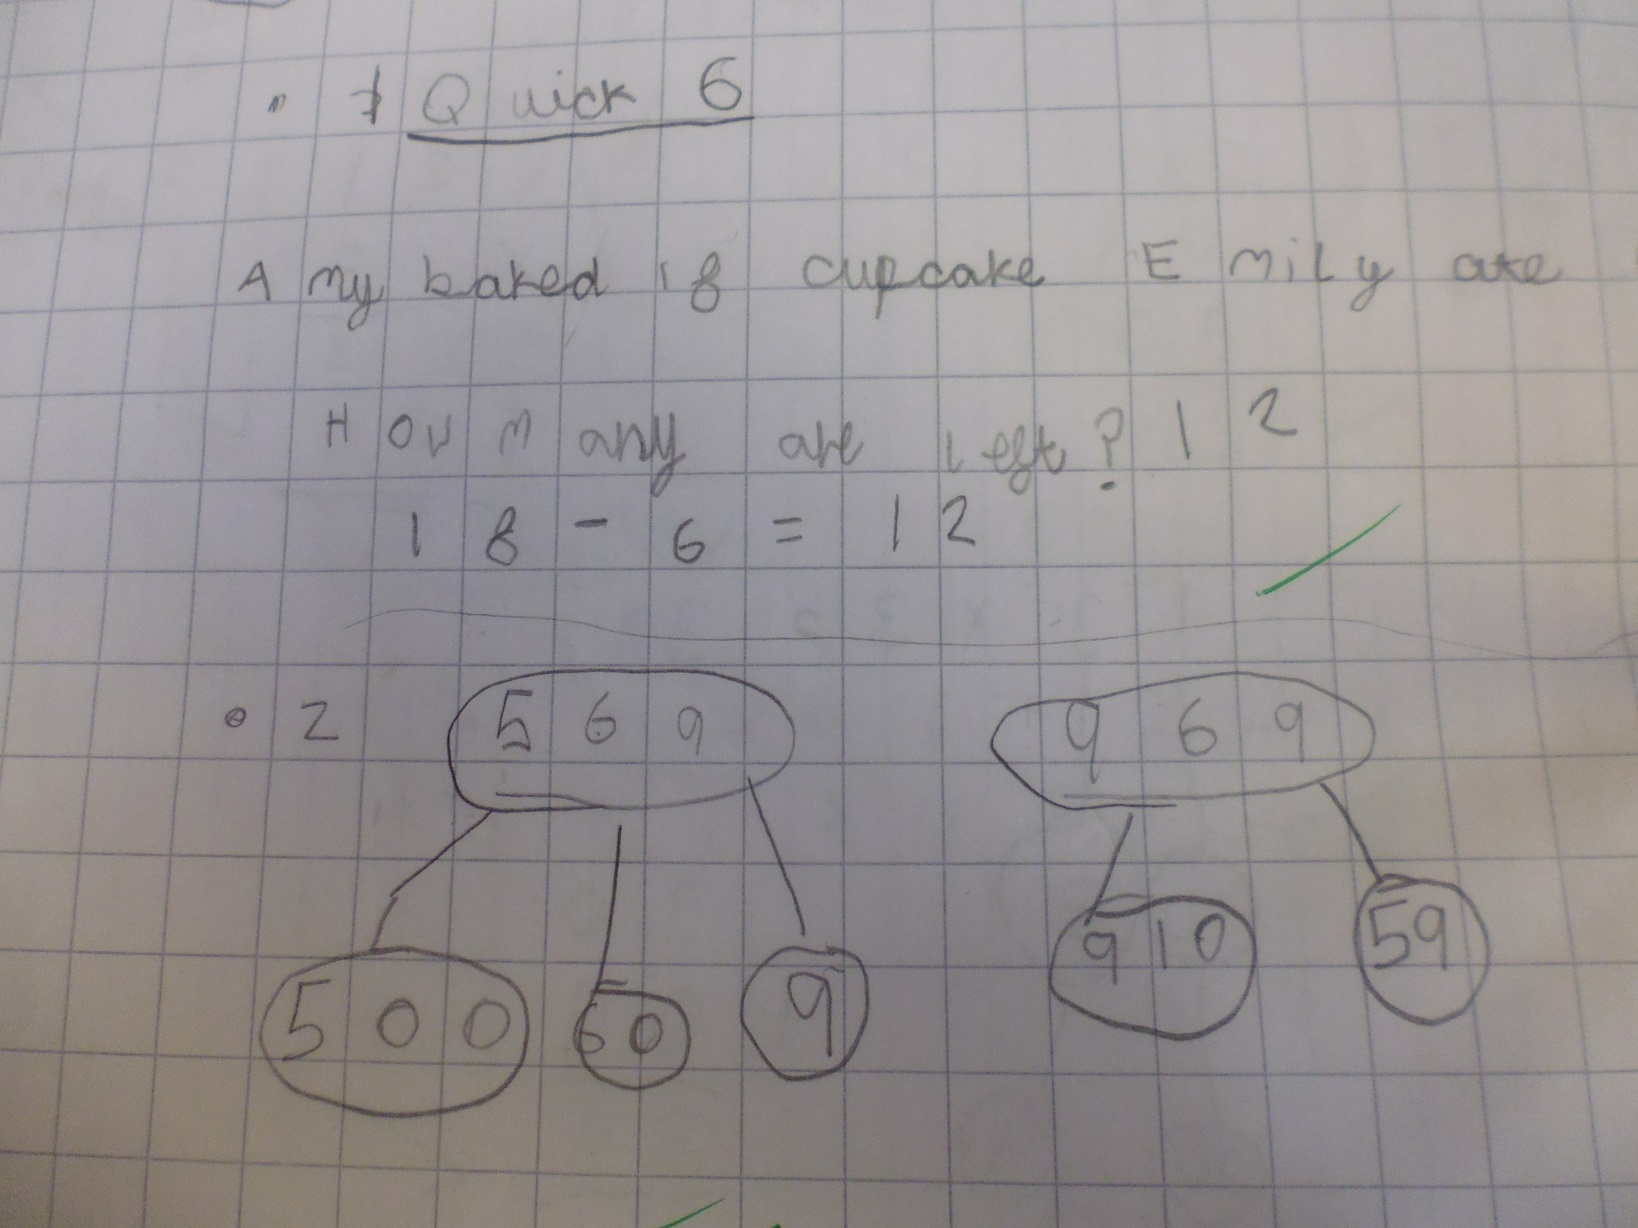 Quick 6
Amy baked 18 cupcake Emily ate
How many are left? 12
18 - 6 = 12
2 569 969
910 59
500 60 9